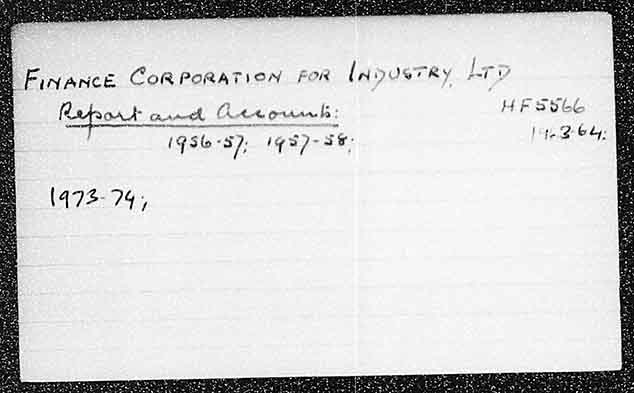 FINANCE CORPORATION FOR INDUSTRY, LTD
Report and Accounts:
HF5566
1956-57; 1957-58;
3-64;
1973-74;